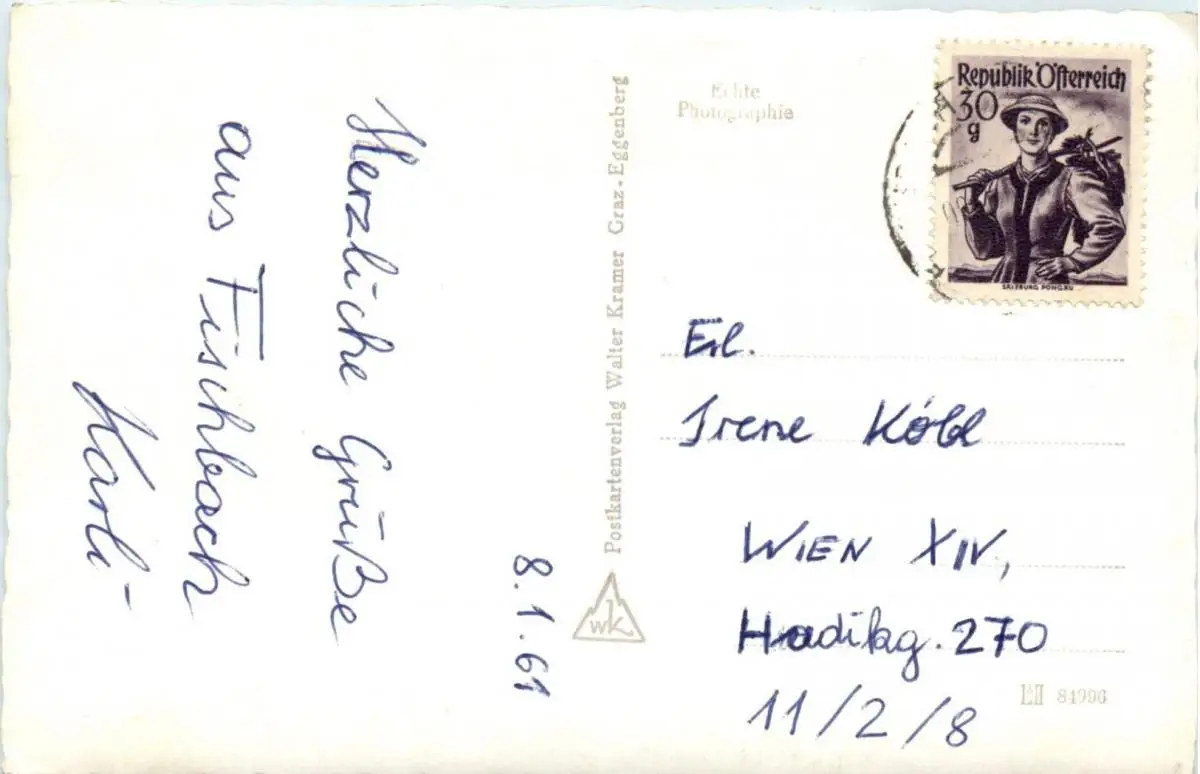 8.1.61
Herzliche Grüße
aus Fischbach
Karli-
Postkartenverlag Walter Kramer Graz-Eggenberg
wk
Echte
Photographie
Republik Österreich
30
g
SALZBURG PONGAU
Frl.
Irene Köbl
WIEN XIV,
Hadikg. 270
11/2/8
84996